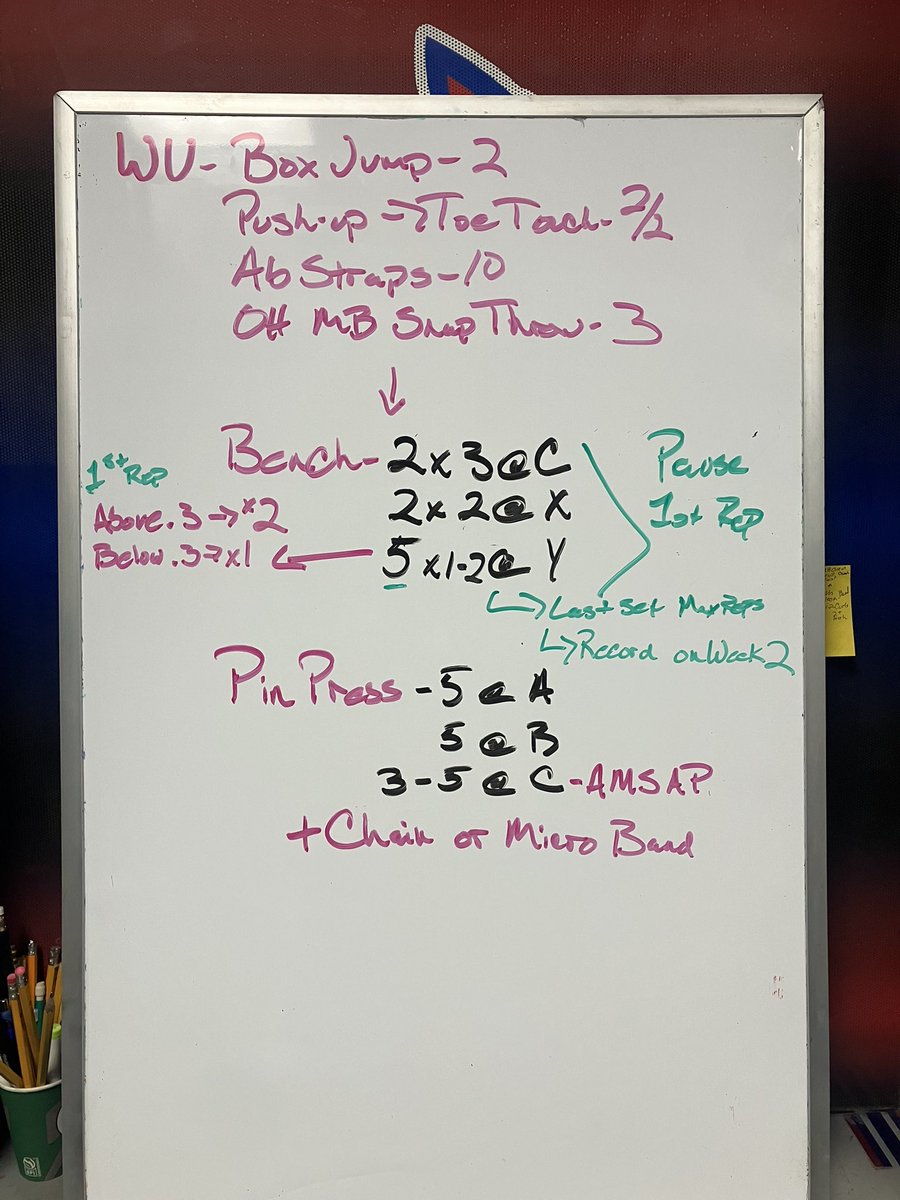 WU- Box Jump - 2
Push-up → Toe Touch - 2/2
Ab Straps - 10
OH MB Snap Throw - 3
↓
Bench - 2 x 3 @ C
2 x 2 @ X
5 x 1-2 @ Y
1st Rep
Above .3 → x2
Below .3 → x1
Pause
1st Rep
↳ Last set Max Reps
↳ Record on Week 2
Pin Press - 5 @ A
5 @ B
3-5 @ C - AMSAP
+ Chain or Micro Band